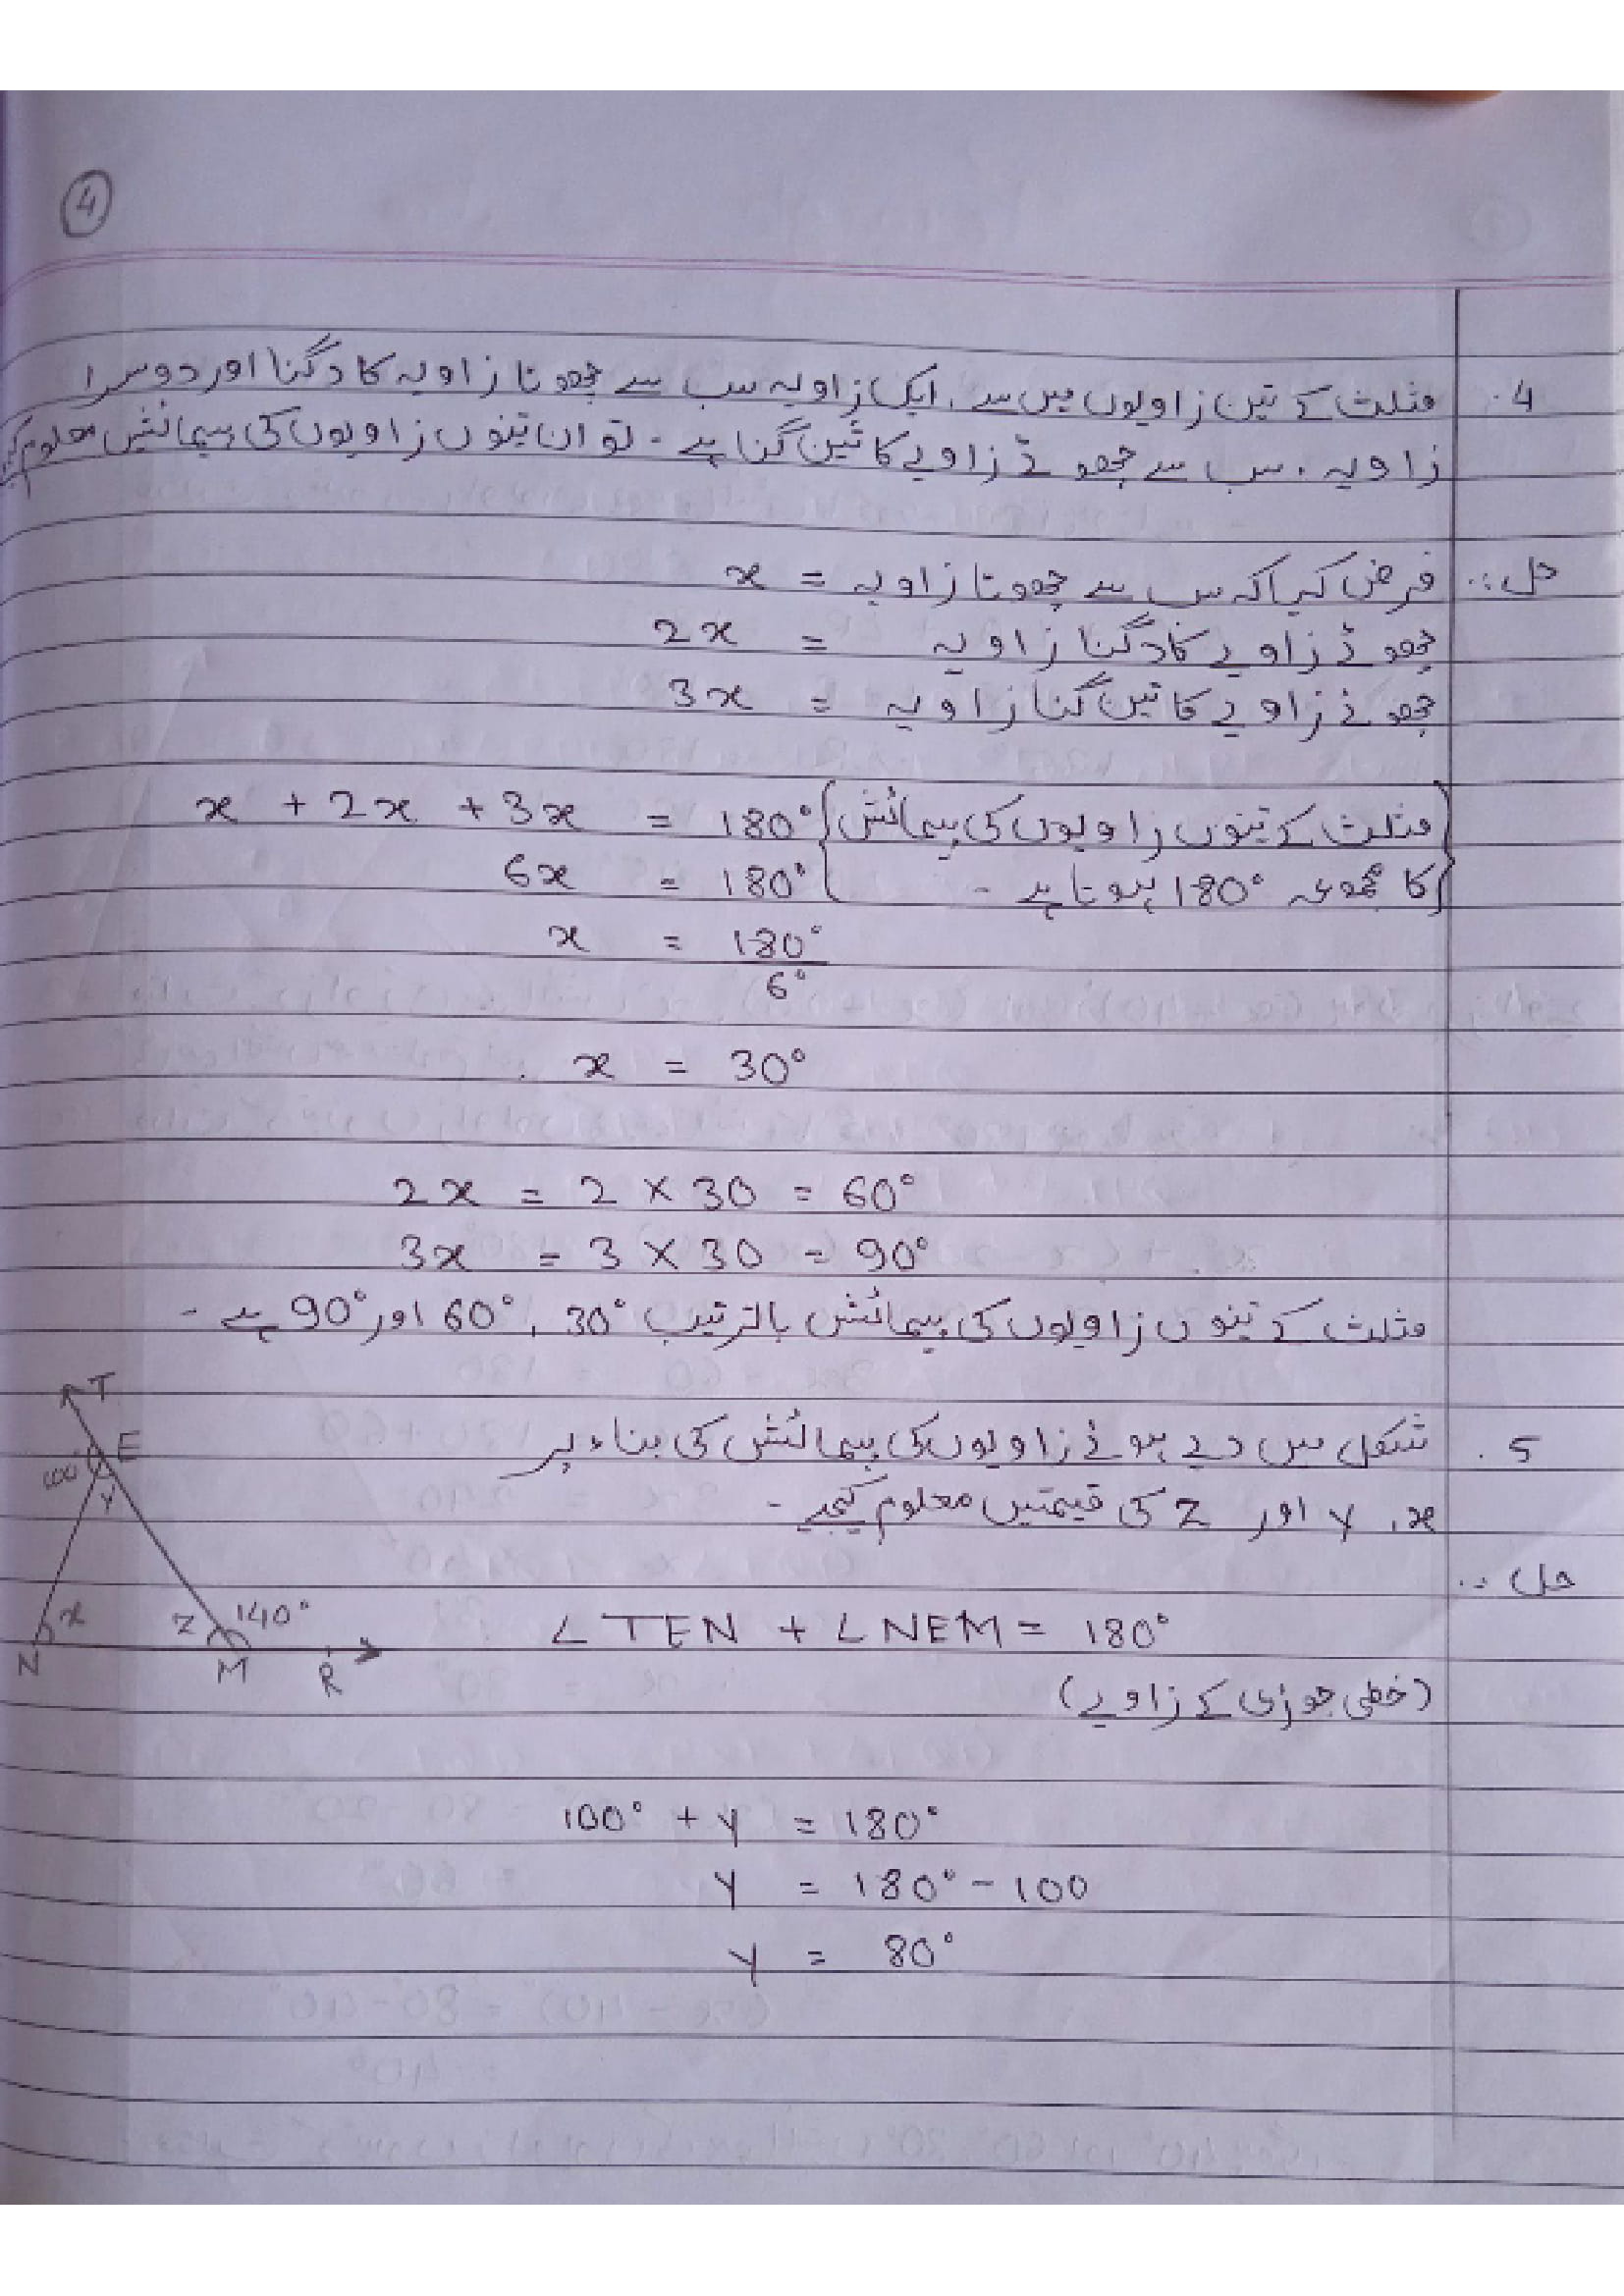 4
4. مثلث کے تین زاویوں میں سے، ایک زاویہ سب سے چھوٹا زاویہ کا دگنا اور دوسرا
زاویہ، سب سے چھوٹے زاویے کا تین گنا ہے۔ تو ان تینوں زاویوں کی پیمائش معلوم
حل:. فرض کیا کہ سب سے چھوٹا زاویہ = x
چھوٹے زاویے کا دگنا زاویہ = 2x
چھوٹے زاویے کا تین گنا زاویہ = 3x
x + 2x + 3x = 180° {مثلث کے تینوں زاویوں کی پیمائش
6x = 180° کا مجموعہ 180° ہوتا ہے۔}
x = 180°
6°
x = 30°
2x = 2 × 30 = 60°
3x = 3 × 30 = 90°
مثلث کے تینوں زاویوں کی پیمائش بالترتیب 30°، 60° اور 90° ہے۔
5. شکل میں دیے ہوئے زاویوں کی پیمائش کی بناء پر
x، y اور Z کی قیمتیں معلوم کیجیے۔
حل:.
T
E
100
y
x
Z 140°
N M R
∠TEN + ∠NEM = 180°
(خطی جوڑی کے زاویے)
100° + y = 180°
y = 180° - 100
y = 80°